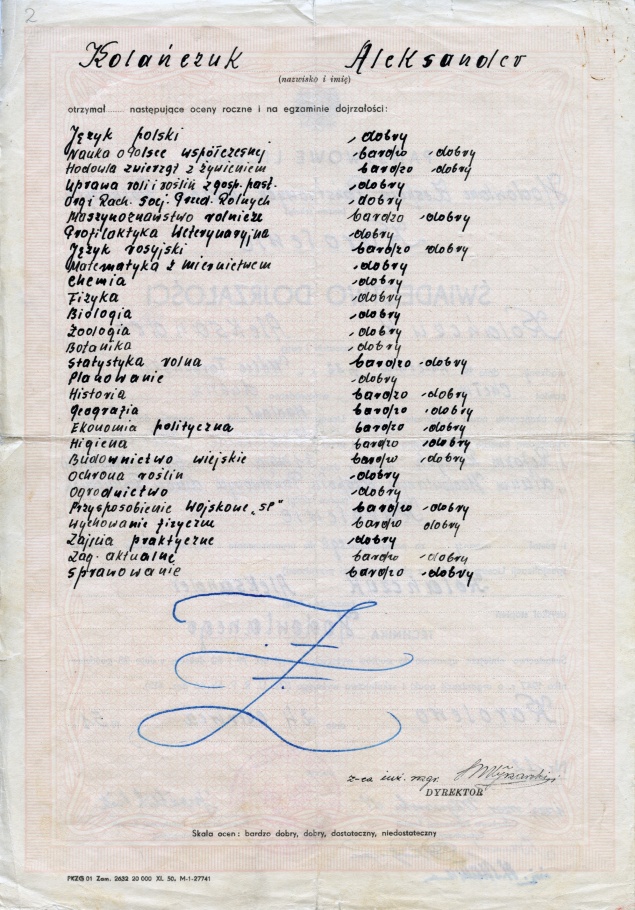 2
Kolańczuk Aleksander
(nazwisko i imię)
otrzymał........ następujące oceny roczne i na egzaminie dojrzałości:
Język polski - dobry
Nauka o Polsce współczesnej - bardzo - dobry
Hodowla zwierząt z żywieniem bardzo - dobry
Uprawa roli i roślin z gosp. past. - dobry
Org i Rach. Socj. Przed. Rolnych - dobry
Maszynoznawstwo rolnicze bardzo - dobry
Profilaktyka Weterynaryjna - dobry
Język rosyjski bardzo dobry
Matematyka z miernictwem - dobry
Chemia - dobry
Fizyka - dobry
Biologia - dobry
Zoologia - dobry
Botanika - dobry
Statystyka rolna bardzo - dobry
Planowanie - dobry
Historia bardzo - dobry
Geografia bardzo - dobry
Ekonomia polityczna bardzo - dobry
Higiena bardzo - dobry
Budownictwo wiejskie bardzo - dobry
Ochrona roślin - dobry
Ogrodnictwo - dobry
Przysposobienie Wojskowe „SP" bardzo - dobry
Wychowanie fizyczne bardzo dobry
Zajęcia praktyczne - dobry
Zag. aktualne bardzo - dobry
Sprawowanie bardzo - dobry
z-ca inż. mgr.
DYREKTOR
Skala ocen: bardzo dobry, dobry, dostateczny, niedostateczny
PKZG 01 Zam. 2632 20 000 XI. 50. M-1-27741